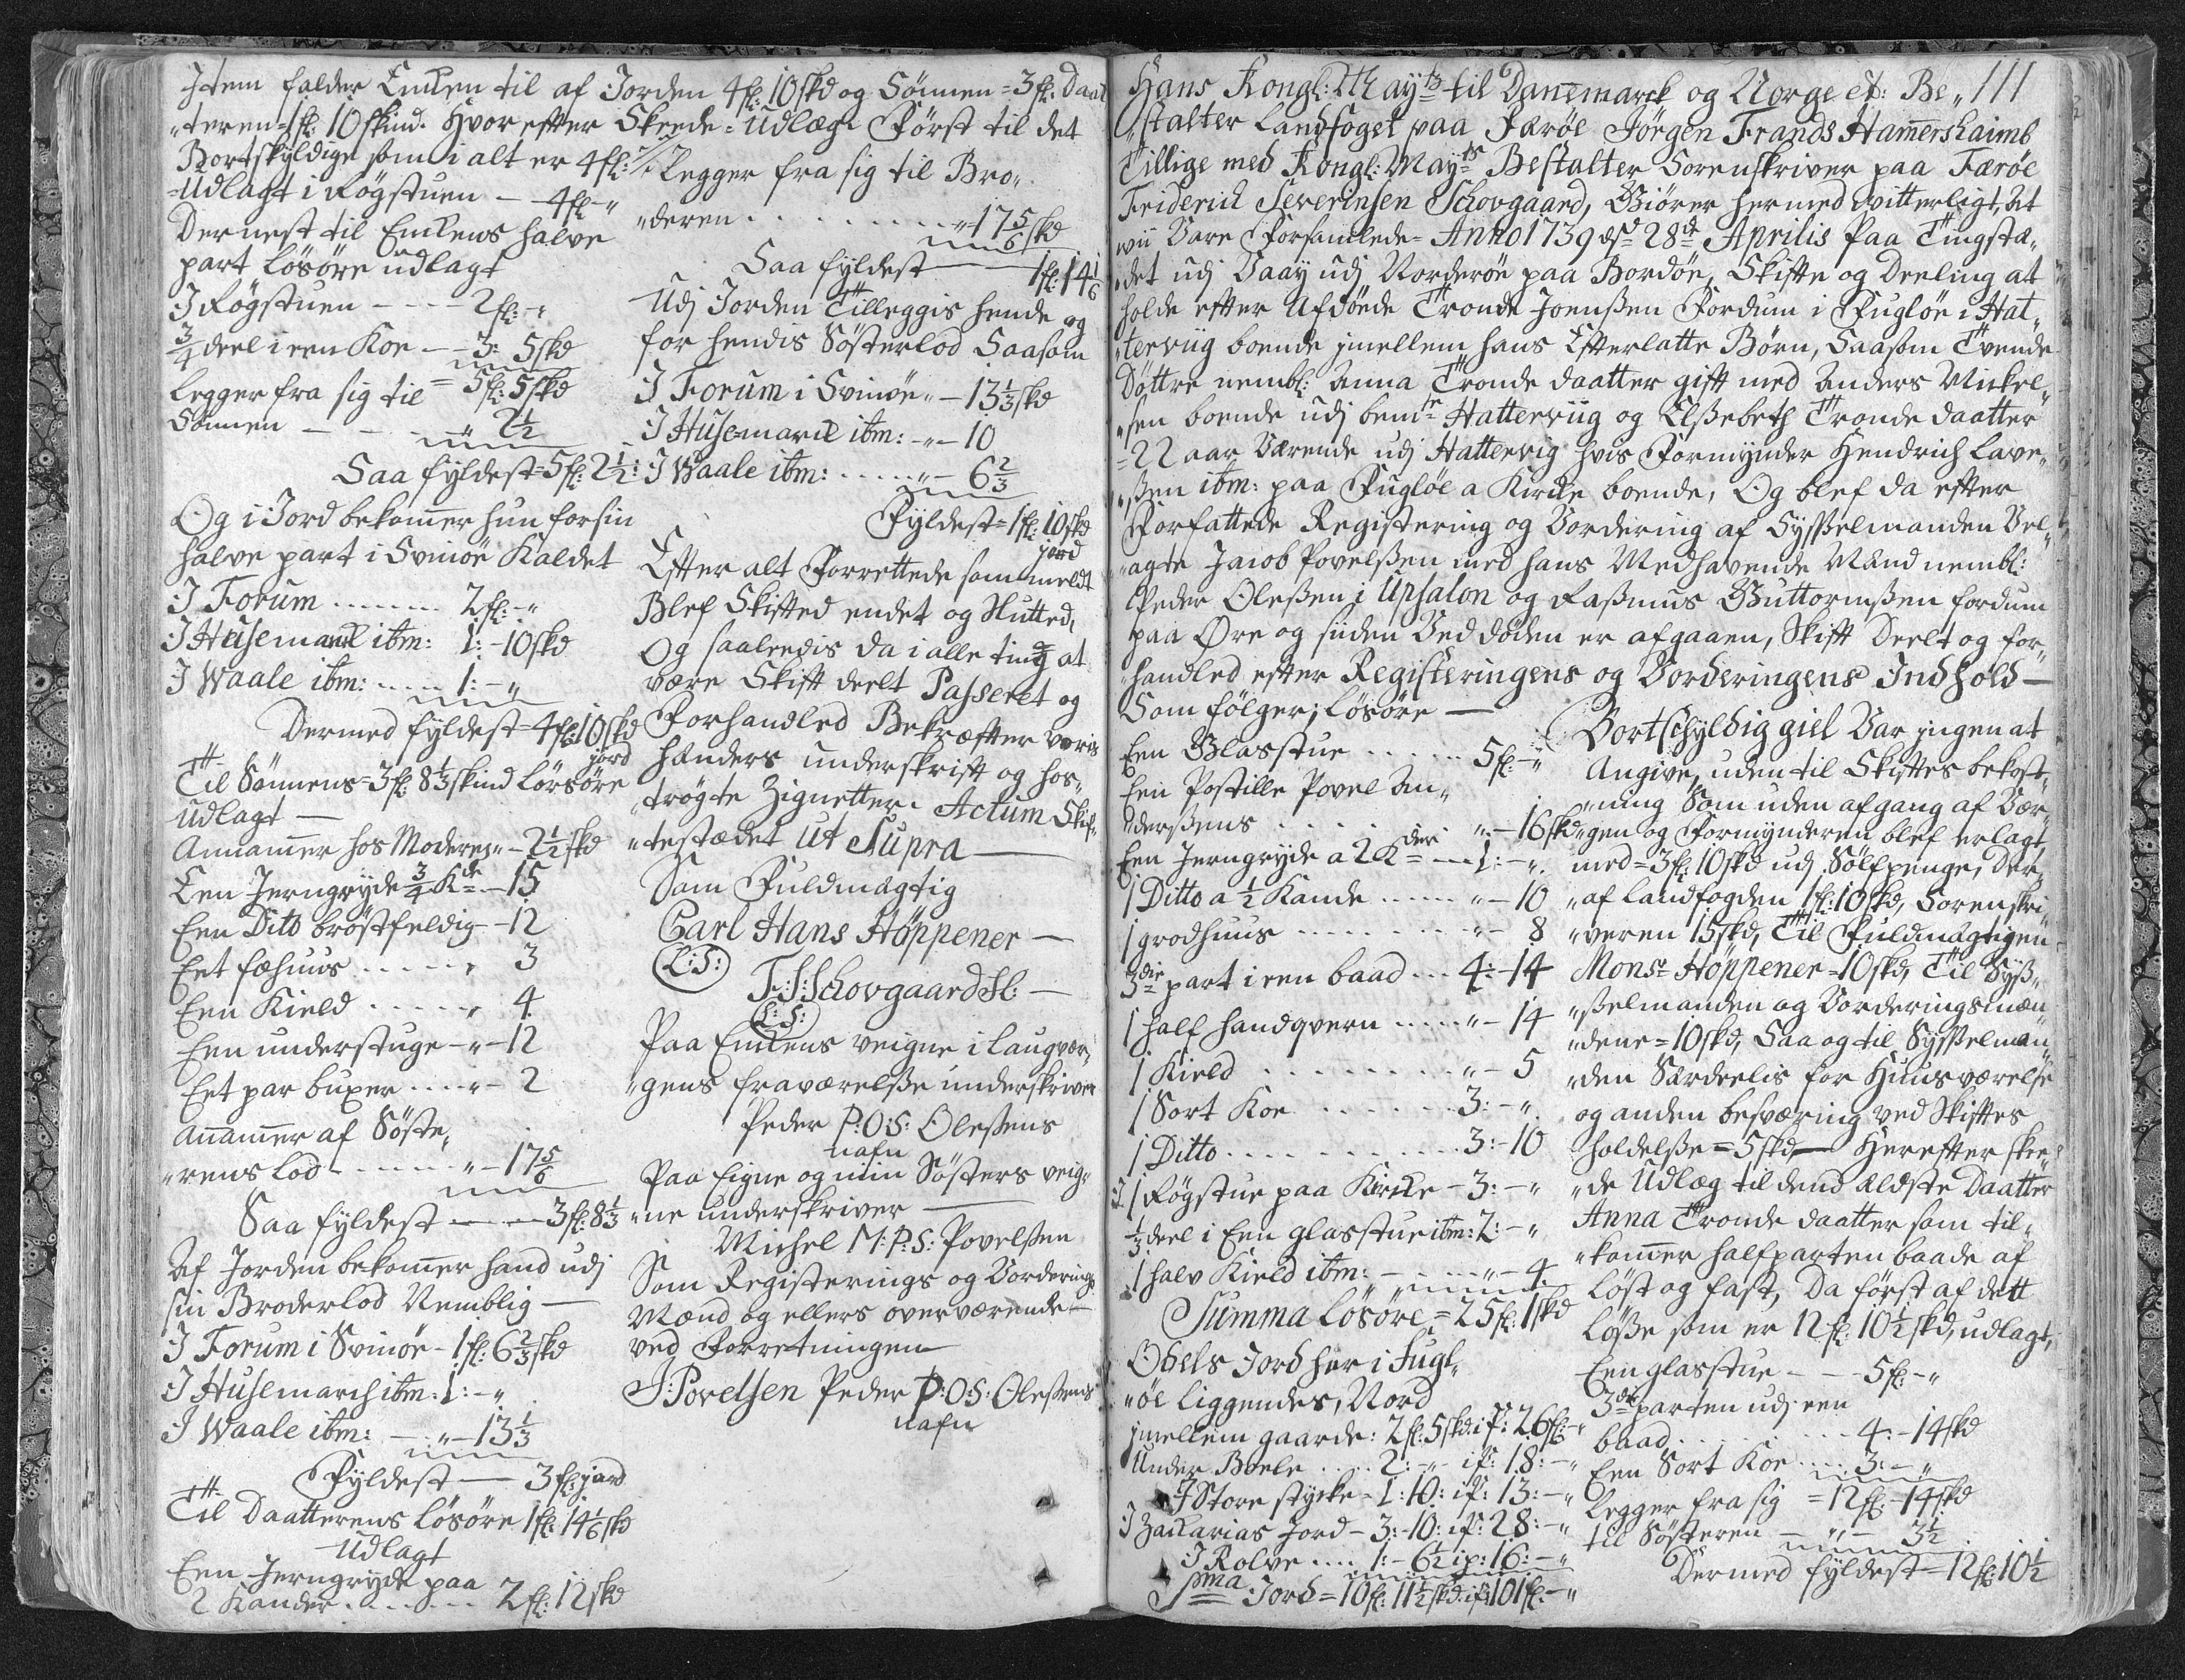 Item falder Enken til af Jorden 4 fl: 10 skd og Sönnen = 3 fl. Daat
"teren 1 fl: 10 skind. Hvor efter Skeede Udlæg. Först til det
Bortskyldige som i alt er 4 fl:
Udlagt i Rögstuen — 4 fl: - "
Der nest til Enkens halve
part lösöre udlagt
I Rögstuen - - - - 2 fl: - "
3/4 deel i een Koe - - 3: 5 skd
= 5 fl: 5 skd
legger fra sig til
Sönnen — - - - " 2 1/2
Saa fyldest = 5 fl: 2 1/2:
Og i Jord bekommer hun for sin
halve part i Svinöe Kaldet
I Forum ........ 2 fl: - "
I Husemarck ibm: 1: - 10 skd
I Waale ibm: ..... 1: - "
Dermed fyldest = 4 fl: 10 skd
jord
Til Sönnens = 3 fl: 8 1/3 skind Lössöre
udlagt —
Annammer hos Moderen " - 2 1/2 skd
Een Jerngryde 3/4 Kde - 15
Een Ditto bröstfeldig - 12
Eet fæhuus ..... " 3
Een Kield ...... " 4
Een understuge - " - 12
Eet par buxer .... " - 2
Annammer af Söste„
"rens lod ...... " - 17 5/6
Saa fyldest — 3 fl: 8 1/3
Af Jorden bekommer hand udj
sin Broderlod Nemblig —
I Forum i Svinöe - 1 fl: 6 2/3 skd
I Husemarch ibm: 1: - "
I Waale ibm: - " - 13 1/3
Fyldest — 3 fl: jord
Til Daatterens lösöre 1 fl: 14 1/6 skd
Udlagt
Een Jerngryde paa
2 Kander ....... 2 fl: 12 skd
Legger fra sig til Bro„
"deren ......... " 17 5/6 skd
Saa fyldest — 1 fl: 14 1/6
Udj Jorden Tilleggis hende og
for hendis Sösterlod Saasom
I Forum i Svinöe " - 13 1/3 skd
I Husemarck ibm: - " - 10
I Waale ibm: ..... " - 6 2/3
Fyldest = 1 fl: 10 skd
jord
Efter alt Forrettede som meldt
Blef Skifted endet og Slutted,
Og saaledis da i alle ting at
være Skift deelt Passeret og
Forhandled Bekræfter voris
hænders underskrift og hos„
"trögte Zignetter. Actum Skif„
"testædet Ut Supra —
Som Fuldmægtig
Carl Hans Höppener —
L:S:
F:S:Schovgaard
L:S:
Paa Enkens veigne i laugvær„
"gens fraværelsse underskriver
Peder P:O:S: Olessens
nafn
Paa Eigne og min Sösters veig„
"ne underskriver —
Michel M:P:S: Povelssen
Som Registerings og Vorderings
Mænd og ellers overværende —
ved Forretningen
J:Povelsen Peder P:O:S: Olessens
nafn
111
Hans Kongl: Mayts til Danemarck og Norge etc: Be„
"stalter Landfoget paa Færöe Jörgen Frands Hamershaimb
Tillige med Kongl: Mayts Bestalter Sorenskriver paa Færöe
Friderich Severinsen Schovgaard, Giörer hermed vitterligt, At
wii Vare Forsamlede Anno 1739 dsd 28de Aprilis Paa Tingstæ„
"det udj Vaay udj Norderöe paa Bordöe, Skifte og Deeling at
holde efter Afdöede Tronde Joenssen Fordum i Fuglöe i Hat„
"terviig boende jmellem hans Efterlatte Börn, Saasom Tvende
Döttre nembl: Anna Tronde daatter gift med Anders Mickel„
"sen boende udj bemte Hatterviig og Elssebeth Tronde daatter
= 22 aar Værende udj Hattervig hvis Formynder Hendrich Lave„
"ssen ibm: paa Fuglöe a Kircke boende, Og blef da efter
Forfattede Registering og Vordering af Sysselmanden Vel„
"agte Jacob Povelssen med hans Medhavende Mænd nembl:
Peder Olessen i Upsalon og Rassmus Guttormssen fordum
paa Öre og siiden Ved döden er afgaaen, Skift Deelt og for„
"handled efter Registeringens og Vorderingens Indhold —
Som fölger; lösöre —
Een Glasstue ...... 5 fl: - "
Een Postille Povel An„
"derssens ........ " - 16 skd
Een Jerngryde a 2 Kder - 1: - "
1 Ditto a 1/2 Kande ...... " - 10
1 grodhuus ......... " - 8
3die part i een baad ... 4: - 14
1 half handqvern ..... " - 14
1 Kield ......... " - 5
1 Sort Koe ...... 3: - "
1 Ditto .......... 3: - 10
1 Rögstue paa Kircke - 3: - "
1/3 deel i Een glasstue ibm: 2: - "
1 halv Kield ibm: - ... " - 4
Summa lösöre = 25 fl: 1 skd
Odels Jord her i Fugl„
"öe liggendes, Nord
jmellem gaarde: 2 fl: 5 skd: is: 26 fl: - "
Under Boele .... 2: - " - is: 18: - "
I Store stycke - 1: 10: is: 13: - "
I Zacharias Jord - 3: - 10: is: 28: - "
I Rolve .... 1: - 6 1/2 is: 16: - "
Sma Jord = 10 fl: 11 1/2 skd. is 101 fl: - "
Bortschyldig giel Var jngen at
Angive, uden til Skiftes bekost„
"ning Som uden afgang af Vær„
"gen og Formynderen blef erlagt,
med = 3 fl: 10 skd udj Sölfpenge, Der„
"af Landfogden 1 fl: 10 skd, Sorenskri„
"veren 15 skd, Til Fuldmægtigen
Monsr Höppener = 10 skd, Til Syss„
"sselmanden og Vorderingsmæn„
"dene = 10 skd, Saa og til Sysselman„
"den Særdeelis for Huusværelse
og anden besværing ved Skiftes
holdelsse = 5 skd — Herefter skee„
"de Udlæg til dend Ældste Daatter
Anna Tronde daatter som til„
"kommer halfparten baade af
löst og fast, Da först af dett
lösse som er 12 fl: 10 1/2 skd, udlagt,
Een glasstue - - - 5 fl: - "
3de parten udj een
baad ........ 4: - 14 skd
Een Sort Koe .... 3: - "
= 12 fl: - 14 skd
legger fra sig
til Sösteren - " - 3 1/2
Dermed fyldest = 12 fl: 10 1/2